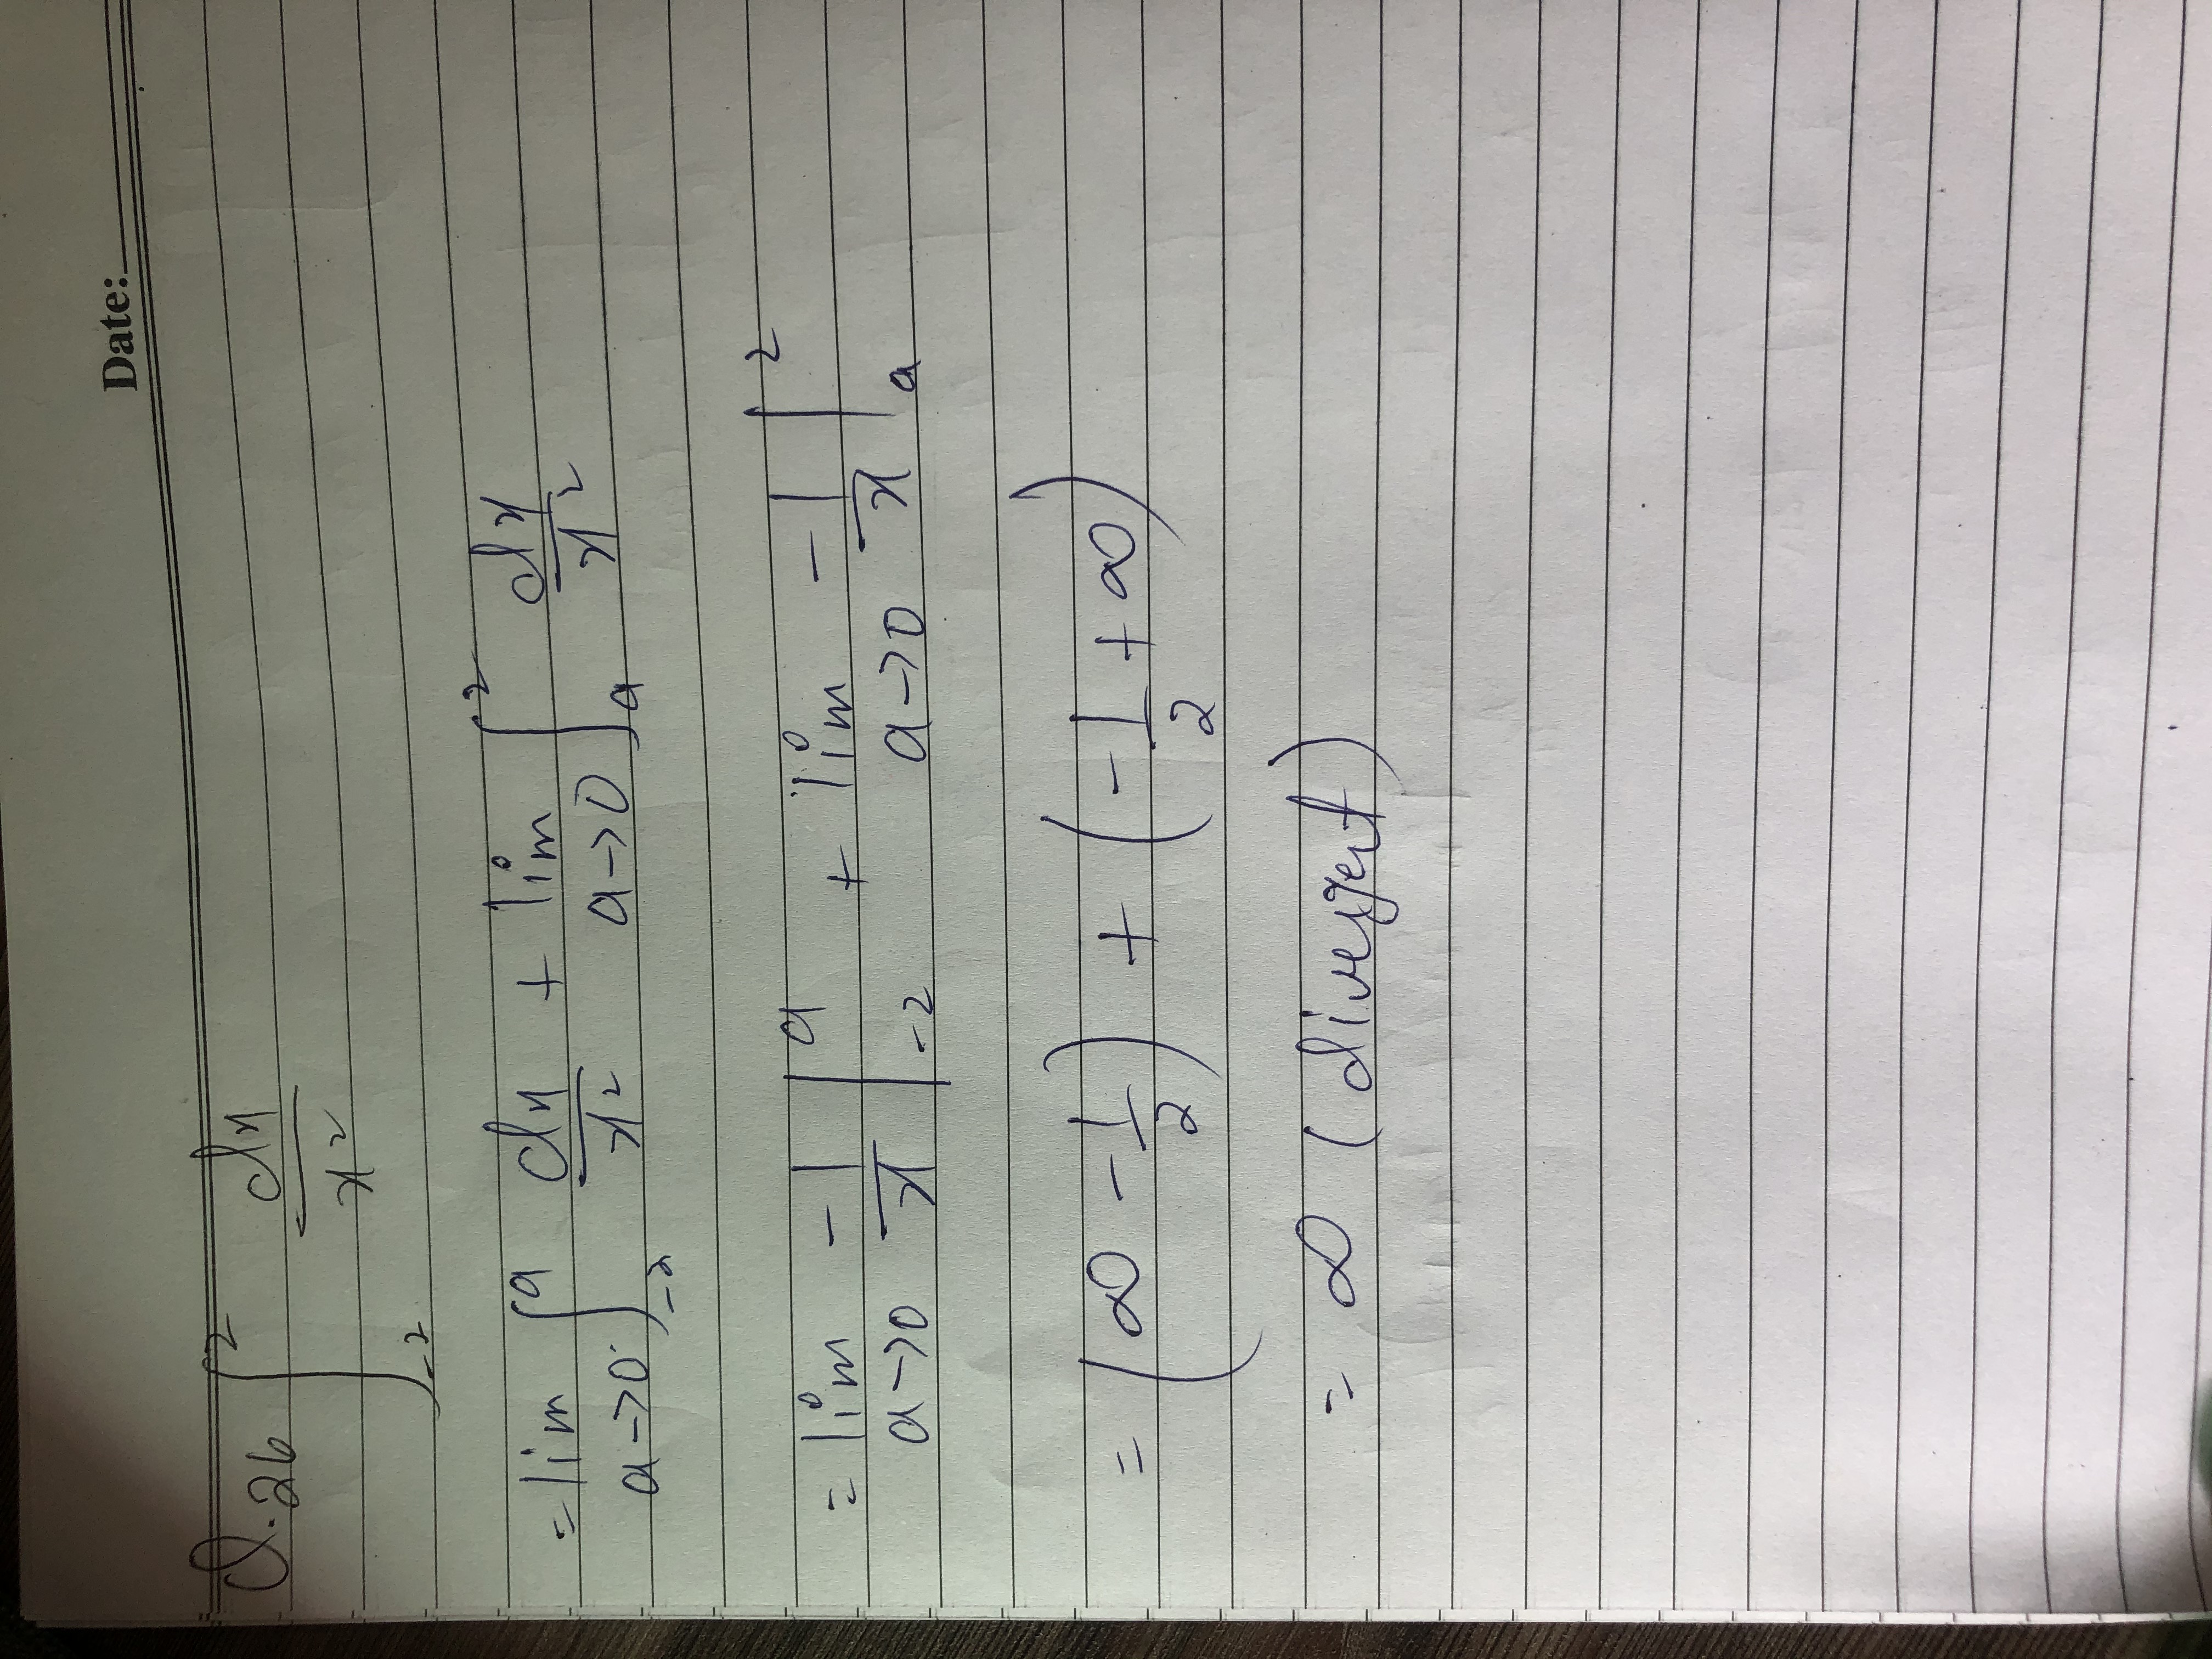 Date:
Q.26 ∫_{-2}^{2} dx/x²
= lim_{a→0} ∫_{-2}^{a} dx/x² + lim_{a→0} ∫_{a}^{2} dx/x²
= lim_{a→0} -1/x |_{-2}^{a} + lim_{a→0} -1/x |_{a}^{2}
= (∞ - 1/2) + (-1/2 + ∞)
= ∞ (divergent)